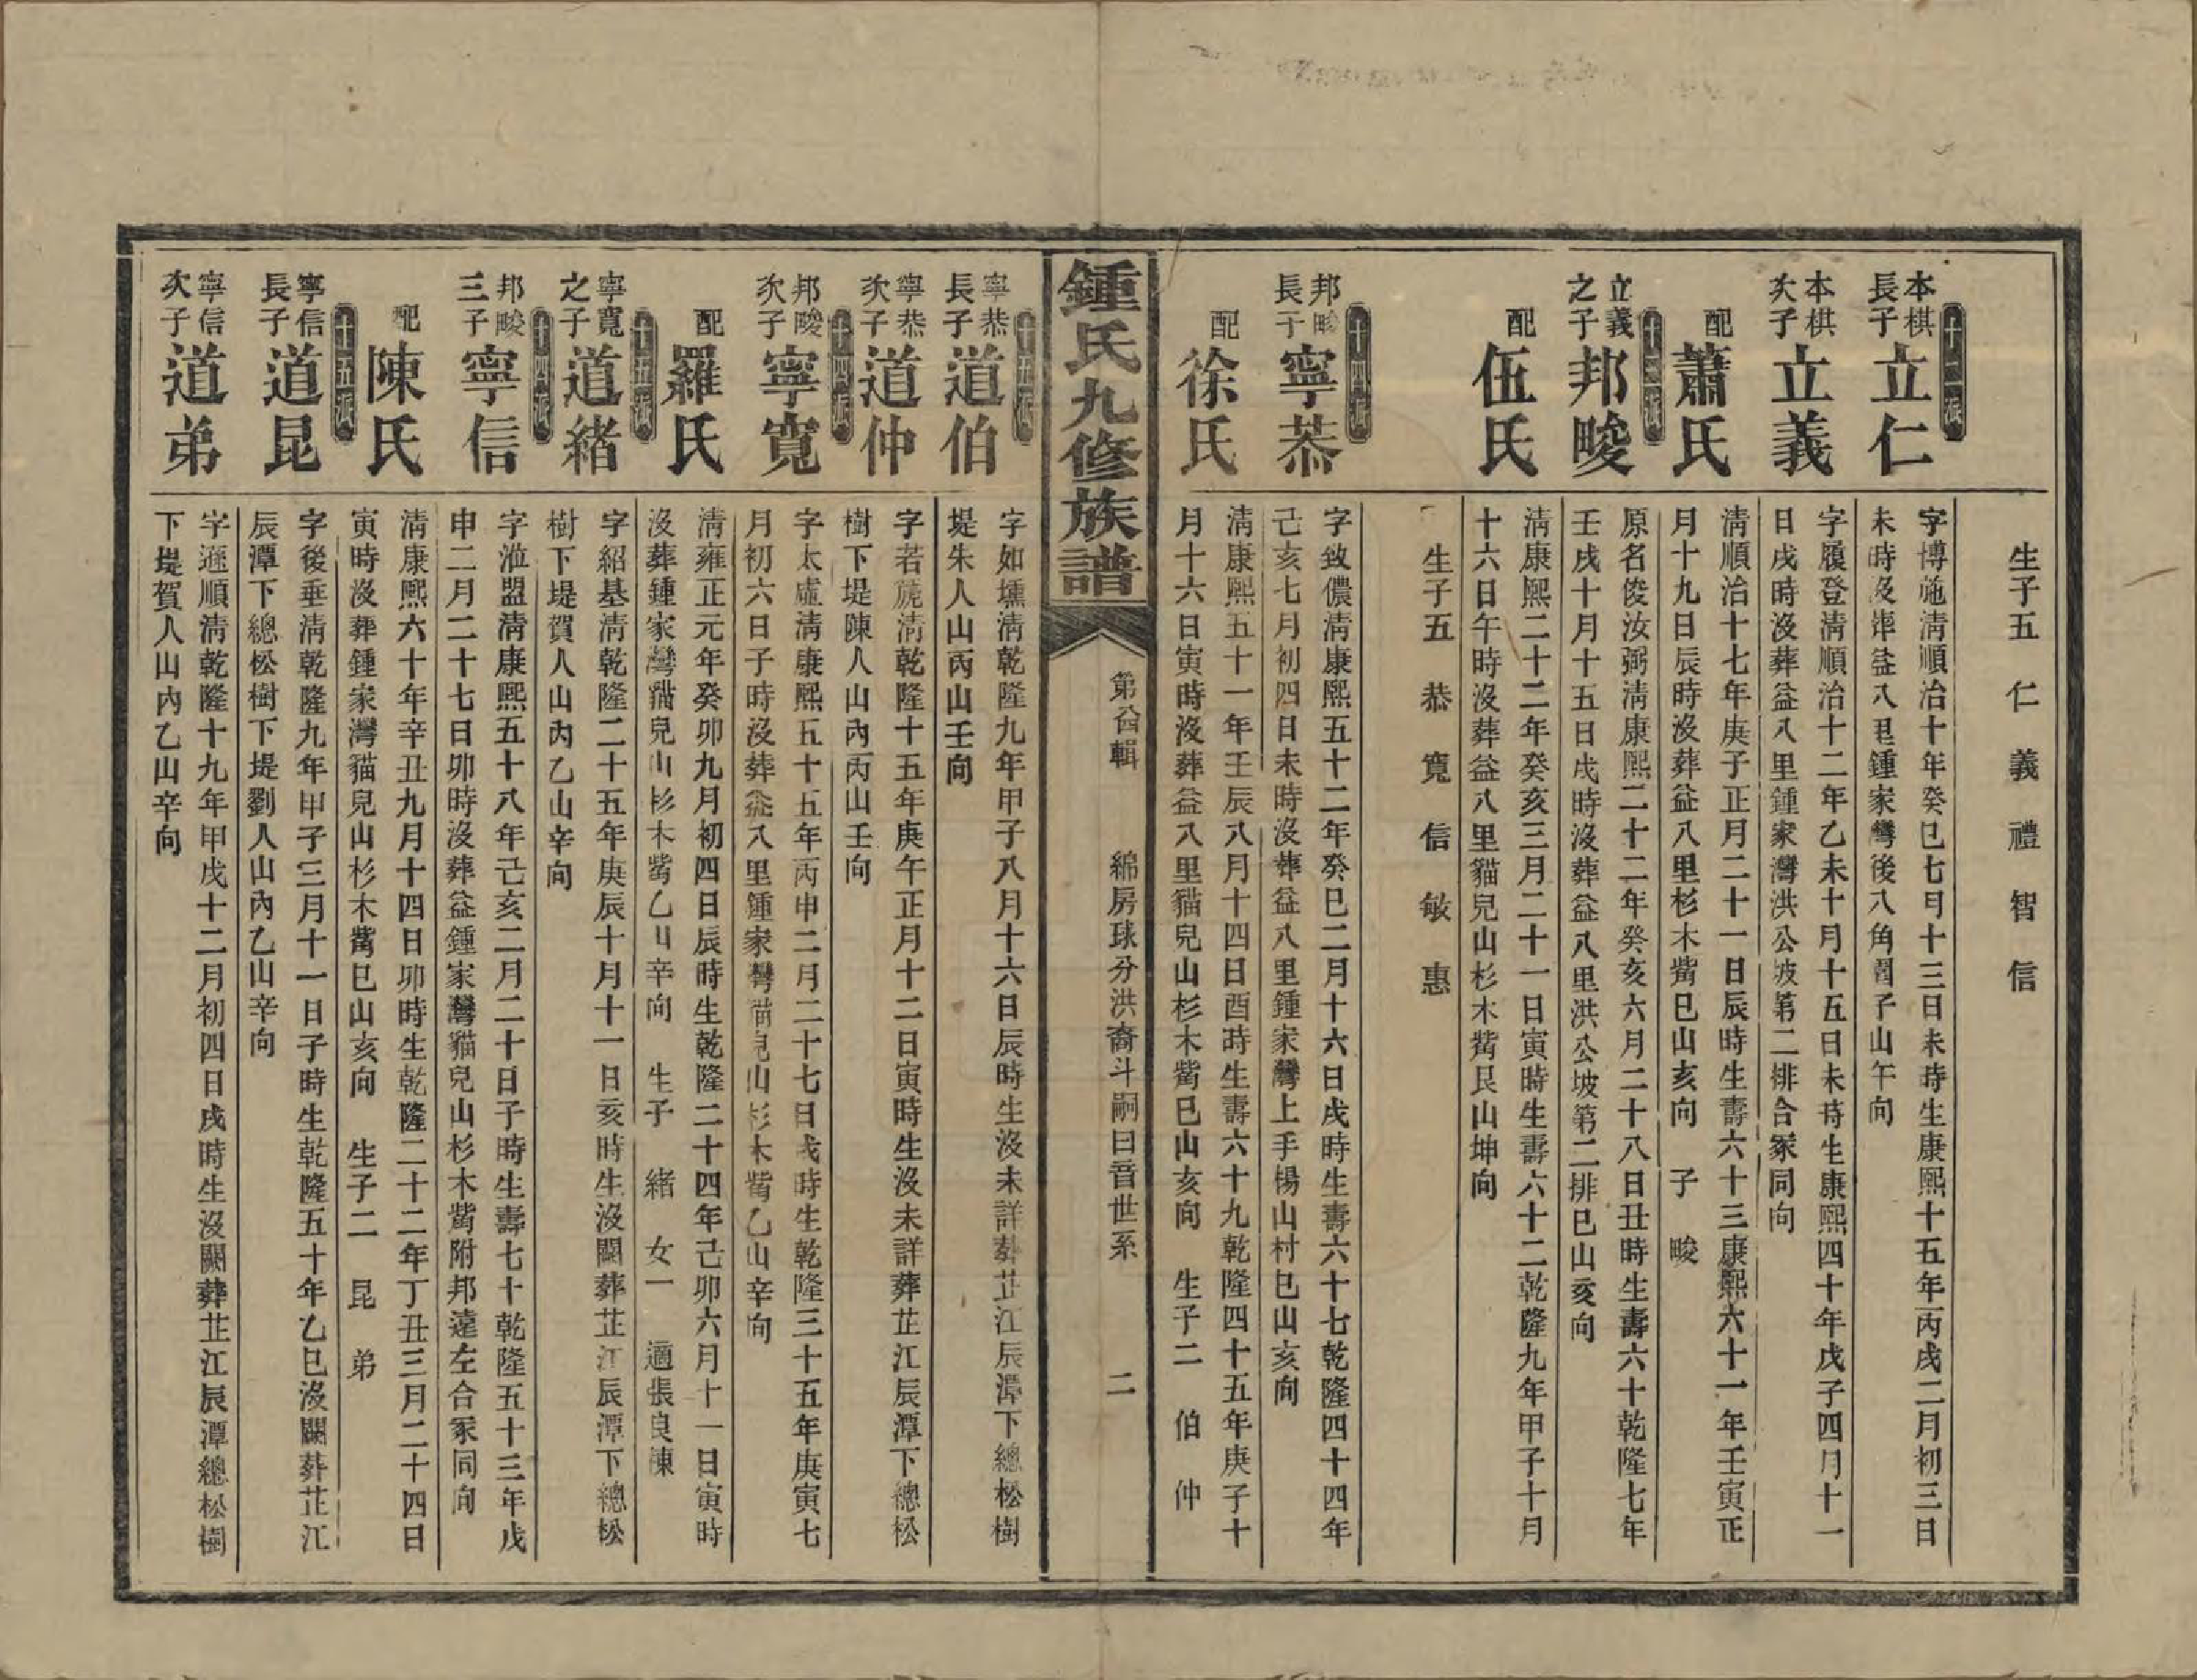 生子五 仁 義 禮 智 信
十二派
本棋長子 立仁
字博施淸順治十年癸巳七月十三日未時生康熙十五年丙戌二月初三日
未時沒葬益八里鍾家灣後八角㘭子山午向
本棋次子 立義
字履登淸順治十二年乙未十月十五日未時生康熙四十年戊子四月十一
日戌時沒葬益八里鍾家灣洪公坡第二排合冢同向
配 蕭氏
淸順治十七年庚子正月二十一日辰時生壽六十三康熙六十一年壬寅正
月十九日辰時沒葬益八里杉木觜巳山亥向 子 畯
十三派
立義之子 邦畯
原名俊汝弼淸康熙二十二年癸亥六月二十八日丑時生壽六十乾隆七年
壬戌十月十五日戌時沒葬益八里洪公坡第二排巳山亥向
配 伍氏
淸康熙二十二年癸亥三月二十一日寅時生壽六十二乾隆九年甲子十月
十六日午時沒葬益八里貓兒山杉木觜艮山坤向
生子五 恭 寬 信 敏 惠
十四派
邦畯長子 寧恭
字致儂淸康熙五十二年癸巳二月十六日戌時生壽六十七乾隆四十四年
己亥七月初四日未時沒葬益八里鍾家灣上手楊山村巳山亥向
配 徐氏
淸康熙五十一年壬辰八月十四日酉時生壽六十九乾隆四十五年庚子十
月十六日寅時沒葬益八里貓兒山杉木觜巳山亥向 生子二 伯 仲
鍾氏九修族譜
第酋輯 綿房球分洪裔斗嗣曰晉世系 二
十五派
寧恭長子 道伯
字如壎淸乾隆九年甲子八月十六日辰時生沒未詳葬芷江辰潭下總松樹
堤朱人山丙山壬向
寧恭次子 道仲
字若篪淸乾隆十五年庚午正月十二日寅時生沒未詳葬芷江辰潭下總松
樹下堤陳人山內丙山壬向
十四派
邦畯次子 寧寬
字太虛淸康熙五十五年丙申二月二十七日戌時生乾隆三十五年庚寅七
月初六日子時沒葬益八里鍾家灣貓兒山杉木觜乙山辛向
配 羅氏
淸雍正元年癸卯九月初四日辰時生乾隆二十四年己卯六月十一日寅時
沒葬鍾家灣貓兒山杉木觜乙山辛向 生子 緒 女一 適張良棟
十五派
寧寬之子 道緒
字紹基淸乾隆二十五年庚辰十月十一日亥時生沒闕葬芷江辰潭下總松
樹下堤賀人山內乙山辛向
十四派
邦畯三子 寧信
字淮盟淸康熙五十八年己亥二月二十日子時生壽七十乾隆五十三年戊
申二月二十七日卯時沒葬益鍾家灣貓兒山杉木觜附邦達左合冢同向
配 陳氏
淸康熙六十年辛丑九月十四日卯時生乾隆二十二年丁丑三月二十四日
寅時沒葬鍾家灣貓兒山杉木觜巳山亥向 生子二 昆 弟
十五派
寧信長子 道昆
字後垂淸乾隆九年甲子三月十一日子時生乾隆五十年乙巳沒闕葬芷江
辰潭下總松樹下堤劉人山內乙山辛向
寧信次子 道弟
字遜順淸乾隆十九年甲戌十二月初四日戌時生沒闕葬芷江辰潭總松樹
下堤賀人山內乙山辛向